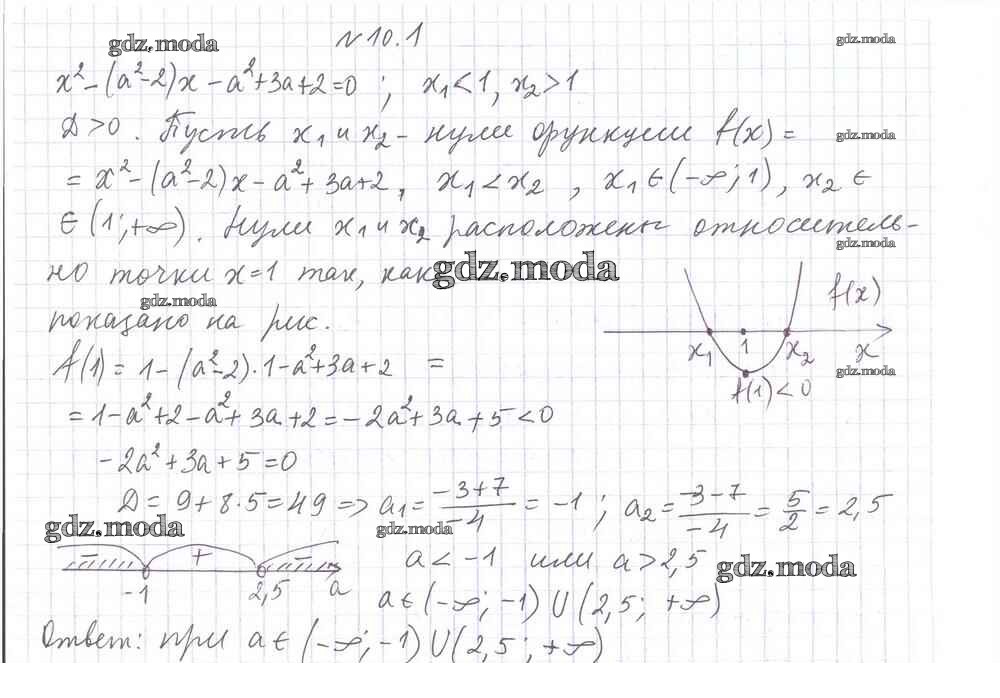 N 10.1
gdz.moda
gdz.moda
x² - (a²-2)x - a² + 3a + 2 = 0 ; x₁ < 1, x₂ > 1
D > 0. Пусть x₁ и x₂ - нули функции f(x) =
gdz.moda
= x² - (a²-2)x - a² + 3a + 2, x₁ < x₂, x₁ ∈ (-∞; 1), x₂ ∈
∈ (1; +∞). Нули x₁ и x₂ расположены относитель-
gdz.moda
но точки x = 1 так, как
gdz.moda
gdz.moda
показано на рис.
f(x)
x₁ 1 x₂ x
f(1) < 0
gdz.moda
f(1) = 1 - (a²-2)·1 - a² + 3a + 2 =
= 1 - a² + 2 - a² + 3a + 2 = -2a² + 3a + 5 < 0
-2a² + 3a + 5 = 0
D = 9 + 8·5 = 49 => a₁ = (-3+7)/-4 = -1 ; a₂ = (-3-7)/-4 = 5/2 = 2,5
gdz.moda
gdz.moda
a < -1 или a > 2,5
gdz.moda
- + -
-1 2,5 a
a ∈ (-∞; -1) ∪ (2,5; +∞)
Ответ: при a ∈ (-∞; -1) ∪ (2,5; +∞)